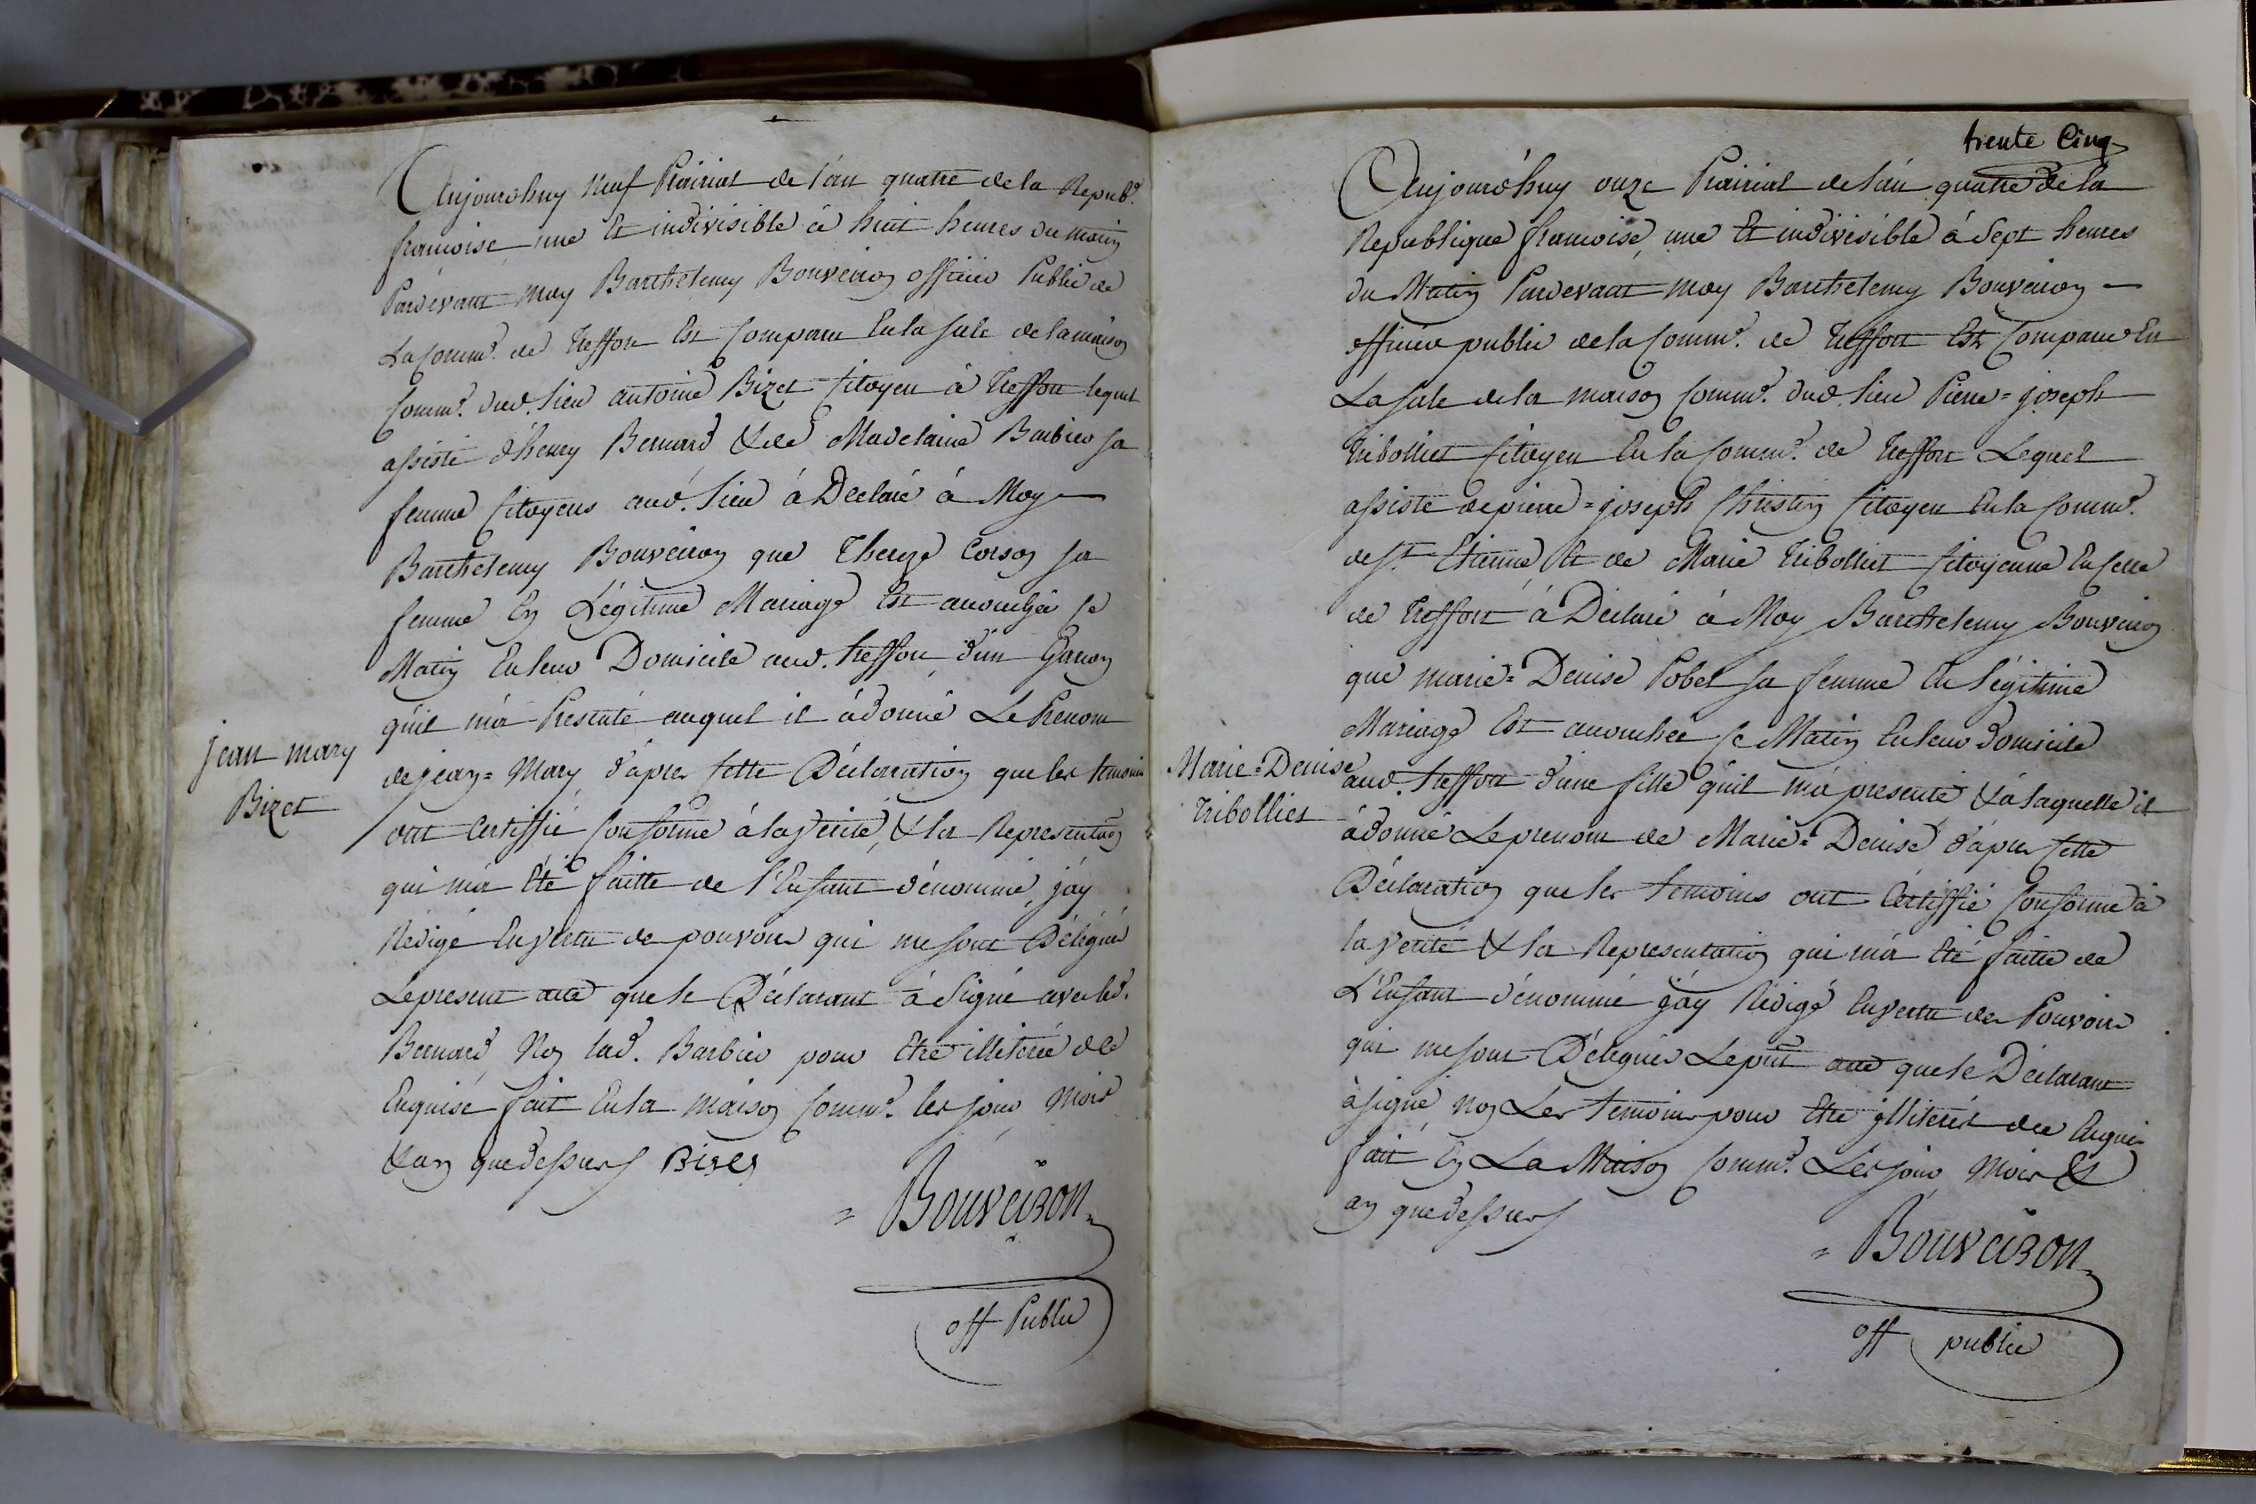 Aujourdhuy neuf Prairial de l'an quatre de la Republ.
francoise une Et indivisible à huit heures du matin
Pardevant moy Barthelemy Bouveiron officier Public de
La Comm.e de Treffort Est Comparu En la sale de la maison
Comm.e dud. lieu antoine Bizet Citoyen à Treffort lequel
assisté d'henry Bernard & de Madelaine Barbier sa
femme Citoyens aud. lieu à Declaré à Moy
Barthelemy Bouveiron que Thereze Corson sa
femme En Légitime Mariage Est accouchée Ce
Matin En leur Domicile aud. treffort d'un Garcon
qu'il m'a Presenté auquel il à donné Le Prenom
de jean=Mary d'après Cette Déclaration que les temoins
ont Certiffié Conforme à la Verité, & la Representation
qui m'a Eté faitte de l'Enfant dénommé, j'ay
Redigé En vertu des pouvoirs qui me sont Délégués
Le present acte que le Déclarant à Signé avec led.
Bernard, Non lad. Barbier pour Etre illiterée de ce
Enquise fait En la maison Comm.e les jour Mois
& an que dessus Biset
jean mary
Bizet
= Bouveiron
off Public
trente Cinq
Aujourd'huy onze Prairial de l'an quatre de la
Republique francoise, une Et indivisible à Sept heures
du Matin Pardevant moy Barthelemy Bouveiron
officier public de la Comm.e de Treffort Est Comparu En
La sale de la maison Comm.e dud. lieu Pierre=joseph
Tribollet Citoyen En la Comm.e de Treffort Lequel
assisté de pierre=joseph Christin Citoyen En la Comm.e
de St. Etienne Et de Marie Tribollet Citoyenne En Celle
de Treffort à Déclaré à Moy Barthelemy Bouveiron
que marie=Denise Pobel sa femme En légitime
Mariage Est accouchée Ce Matin En leur domicile
aud. treffort d'une fille qu'il m'a presenté & à laquelle il
à donné Le prenom de Marie=Denise d'après Cette
Déclaration que les temoins ont Certiffié Conforme à
la verité & la Representation qui m'a Eté faitte de
L'Enfant dénommé j'ay Rédigé En vertu des Pouvoirs
qui me sont Délégués Le pnt acte que le Déclarant
à signé, non Les temoins pour Etre illiterés de ce Enquis
fait En La Maison Comm.e Les jour Mois &
an que dessus
Marie=Denise
Tribollet
= Bouveiron
off public